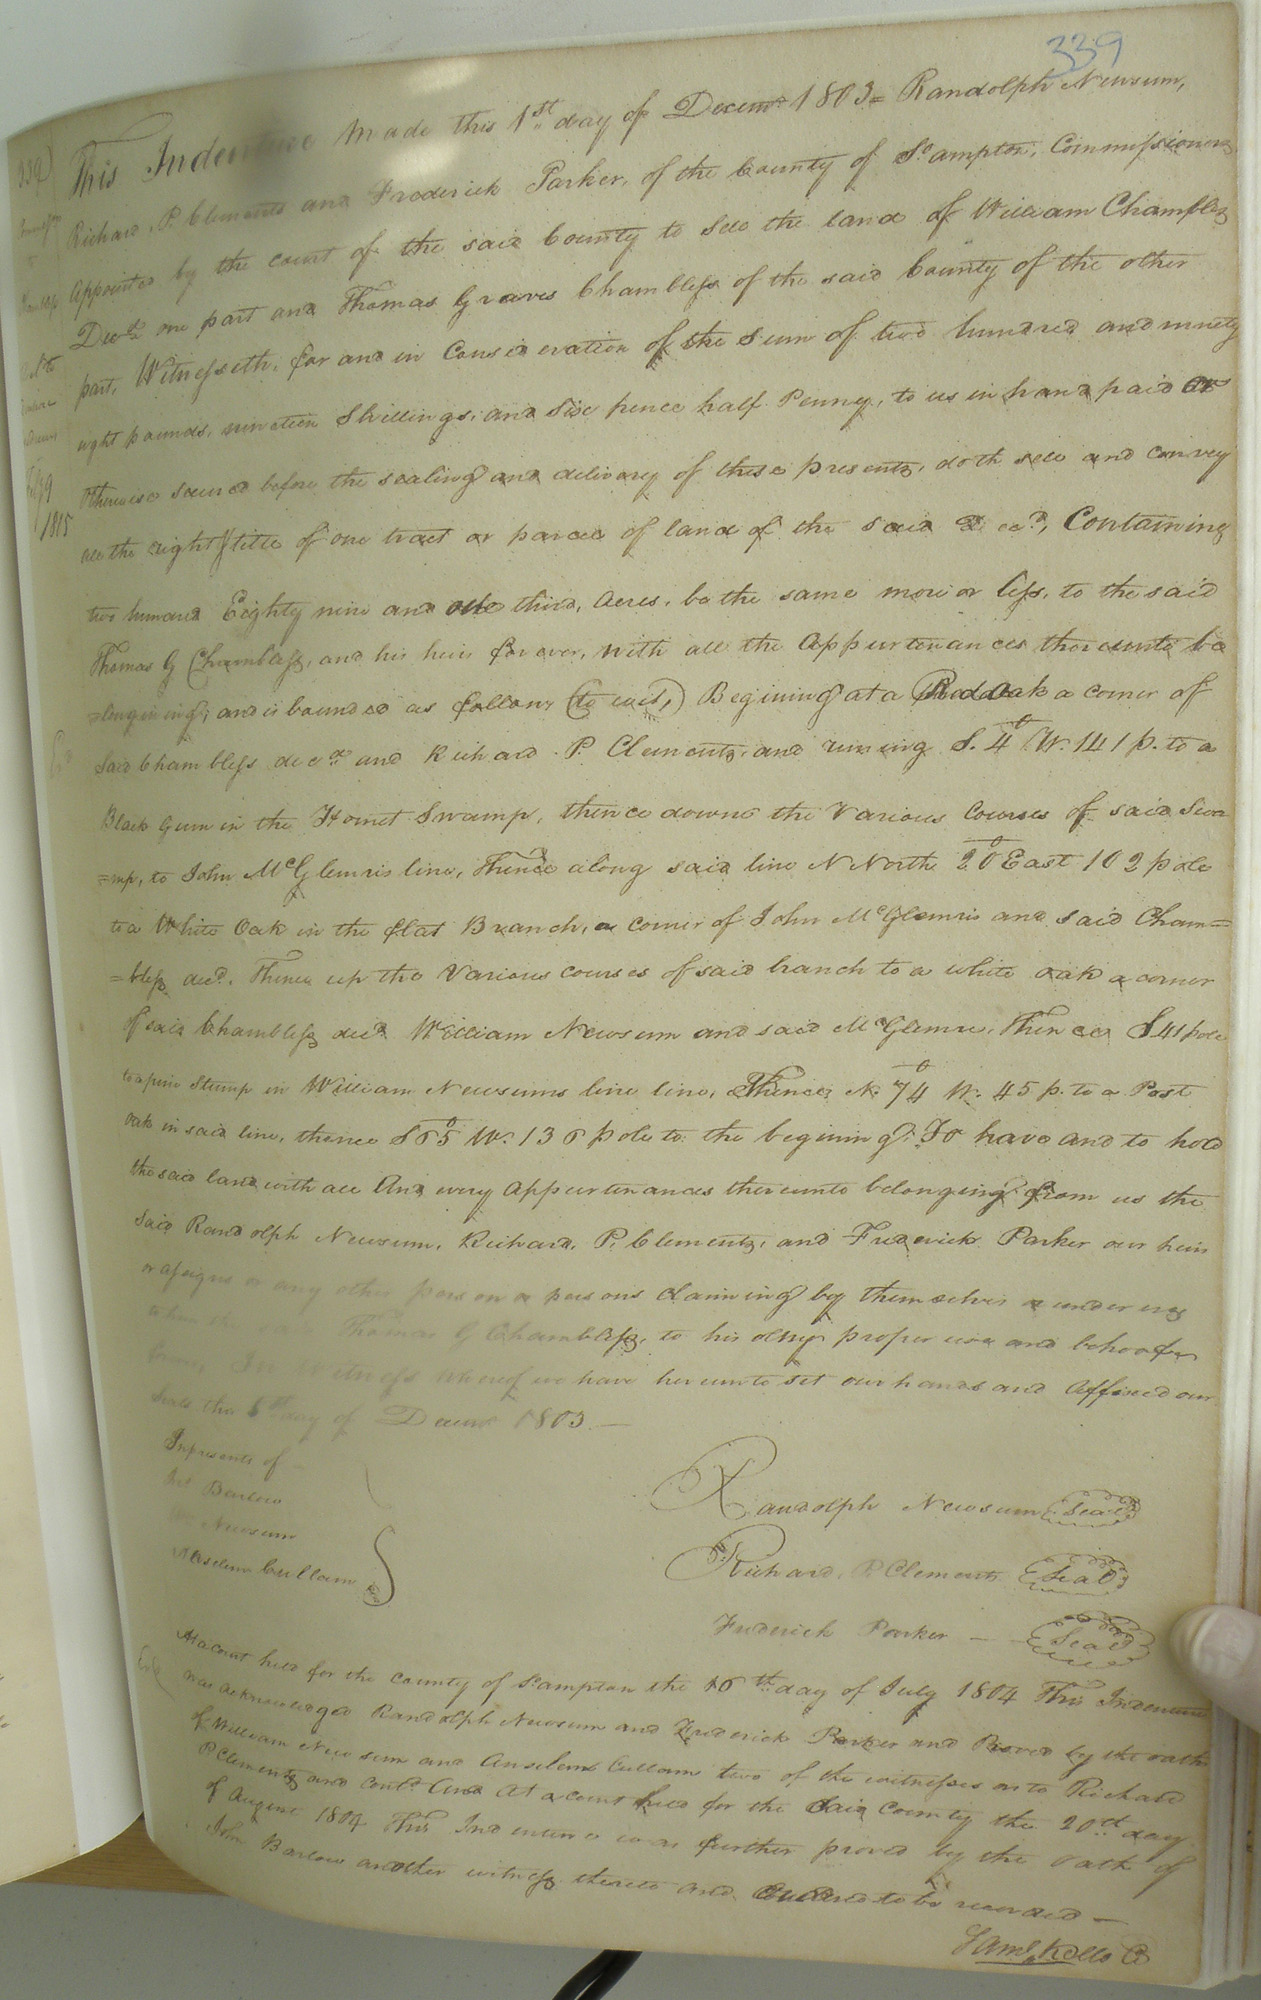 339
This Indenture Made this 1st day of Decemr 1803 = Randolph Newsum,
Richard P. Clements and Frederick Parker, of the County of So.ampton, Commissioners
appointed by the court of the said County to sell the land of William Chambless
Decd. one part and Thomas Graves Chambless of the said County of the other
part, Witnesseth, for and in Consideration of the Sum of two hundred and ninety
eight pounds, nineteen Shillings, and Six pence half Penny, to us in hand paid or
otherwise secured before the sealing and delivery of these presents, doth sell and convey
all the right & title of one tract or parcel of land of the said Decd, Containing
two hundred Eighty nine and one third, Acres, be the same more or less, to the said
Thomas G Chambless, and his heirs forever, with all the Appurtenances thereunto be
=longining, and is bounded as follows (to wit,) Begining at a Red Oak a corner of
said Chambless decd. and Richard P. Clements, and runing S. 4° W. 141 p. to a
Black Gum in the Hornet Swamp, thence down the Various Courses of said Swa
=mp, to John McGlemris line, Thence along said line N North 20° East 102 pole
to a White Oak in the flat Branch, a corner of John McGlemris and said Cham=
=bless decd. Thence up the Various courses of said branch to a white oak a corner
of said Chambless decd. William Newsum and said McGlemre, Thence S 41 pole
to a pine Stump in William Newsums line line, Thence, N. 74° W. 45 p. to a Post
oak in said line, thence S 65° W. 136 pole to the begining. To have and to hold
the said land with all And every Appurtenances thereunto belonging from us the
said Randolph Newsum, Richard, P. Clements, and Frederick Parker our heirs
or assigns or any other person or persons claiming by themselves or under us
Thomas G Chambless, to his only proper use and behoof
In Witness Whereof we have hereunto set our hands and Affixed our
seals the 6th day of Decemr 1803. —
In presents of
Jno. Barlow
Newsum
Anselem Cullam
Randolph Newsum (Seal)
Richard, P. Clements (Seal)
Frederick Parker — (Seal)
At a court held for the County of So.ampton the 16th day of July 1804 This Indenture
was acknowledged Randolph Newsum and Frederick Parker and Proved by the oaths
of William Newsum and Anselem Cullam two of the witnesses as to Richard
P Clements and Contd. And At a court held for the said County the 20th day
of August 1804 This Indenture was further proved by the oath of
John Barlow another witness thereto and ordered to be recorded —
Saml. Kello C
339)
1815